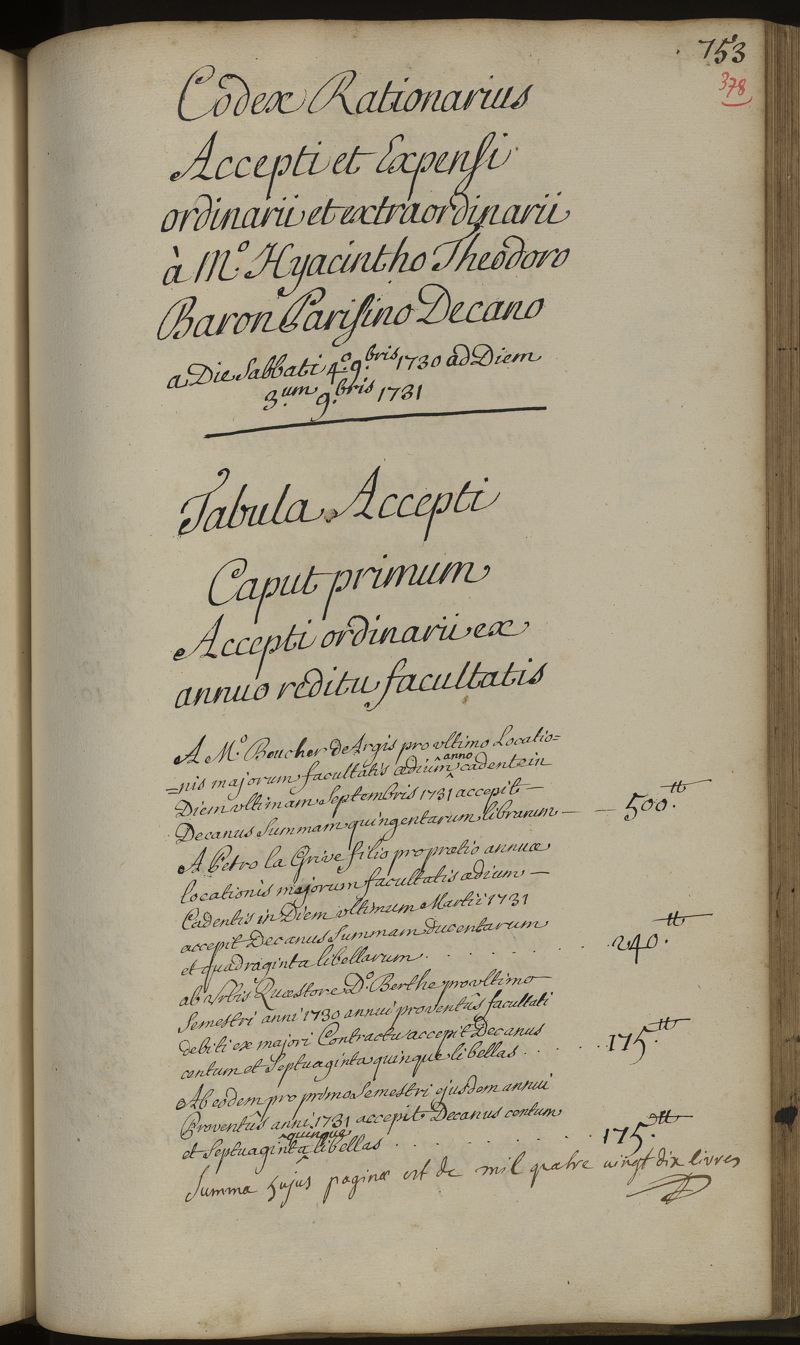 753
378
Codex Rationarius
Accepti et Expensi
ordinarii et extraordinarii
à M.º Hyacintho Theodoro
Baron Parisino Decano
a Die Sabbati 4.º 9.bris 1730 ad Diem
3.um 9.bris 1731
Tabula Accepti
Caput primum
Accepti ordinarii ex
annuo reditu facultatis
A M.º Boucher de Argis pro vltimo Locatio=
=nis majorum facultatis ædium anno cadente in
Diem vltimam Septembris 1731 accepit
Decanus Summam quingentarum librarum — 500.tt
A Petro la Grive filio pro prætio annuæ
locationis majorum facultatis ædium
Cadentis in Diem vltimum Martii 1731
accepit Decanus Summam ducentarum
et quadraginta libellarum . . . . . . . 240.tt
ab Urbis Quæstore D.º Berthe pro vltimo
Semestri anni 1730 annui proventûs facultati
debiti ex majori Contractu accepit Decanus
centum et Septuaginta quinque libellas . . . . 175.tt
Ab eodem pro primo Semestri ejusdem annui
Proventûs anni 1731 accepit Decanus centum
et Septuaginta quinque libellas . . . . . . . 175.tt
Summa hujus paginæ est de mil quatre vingt dix livres